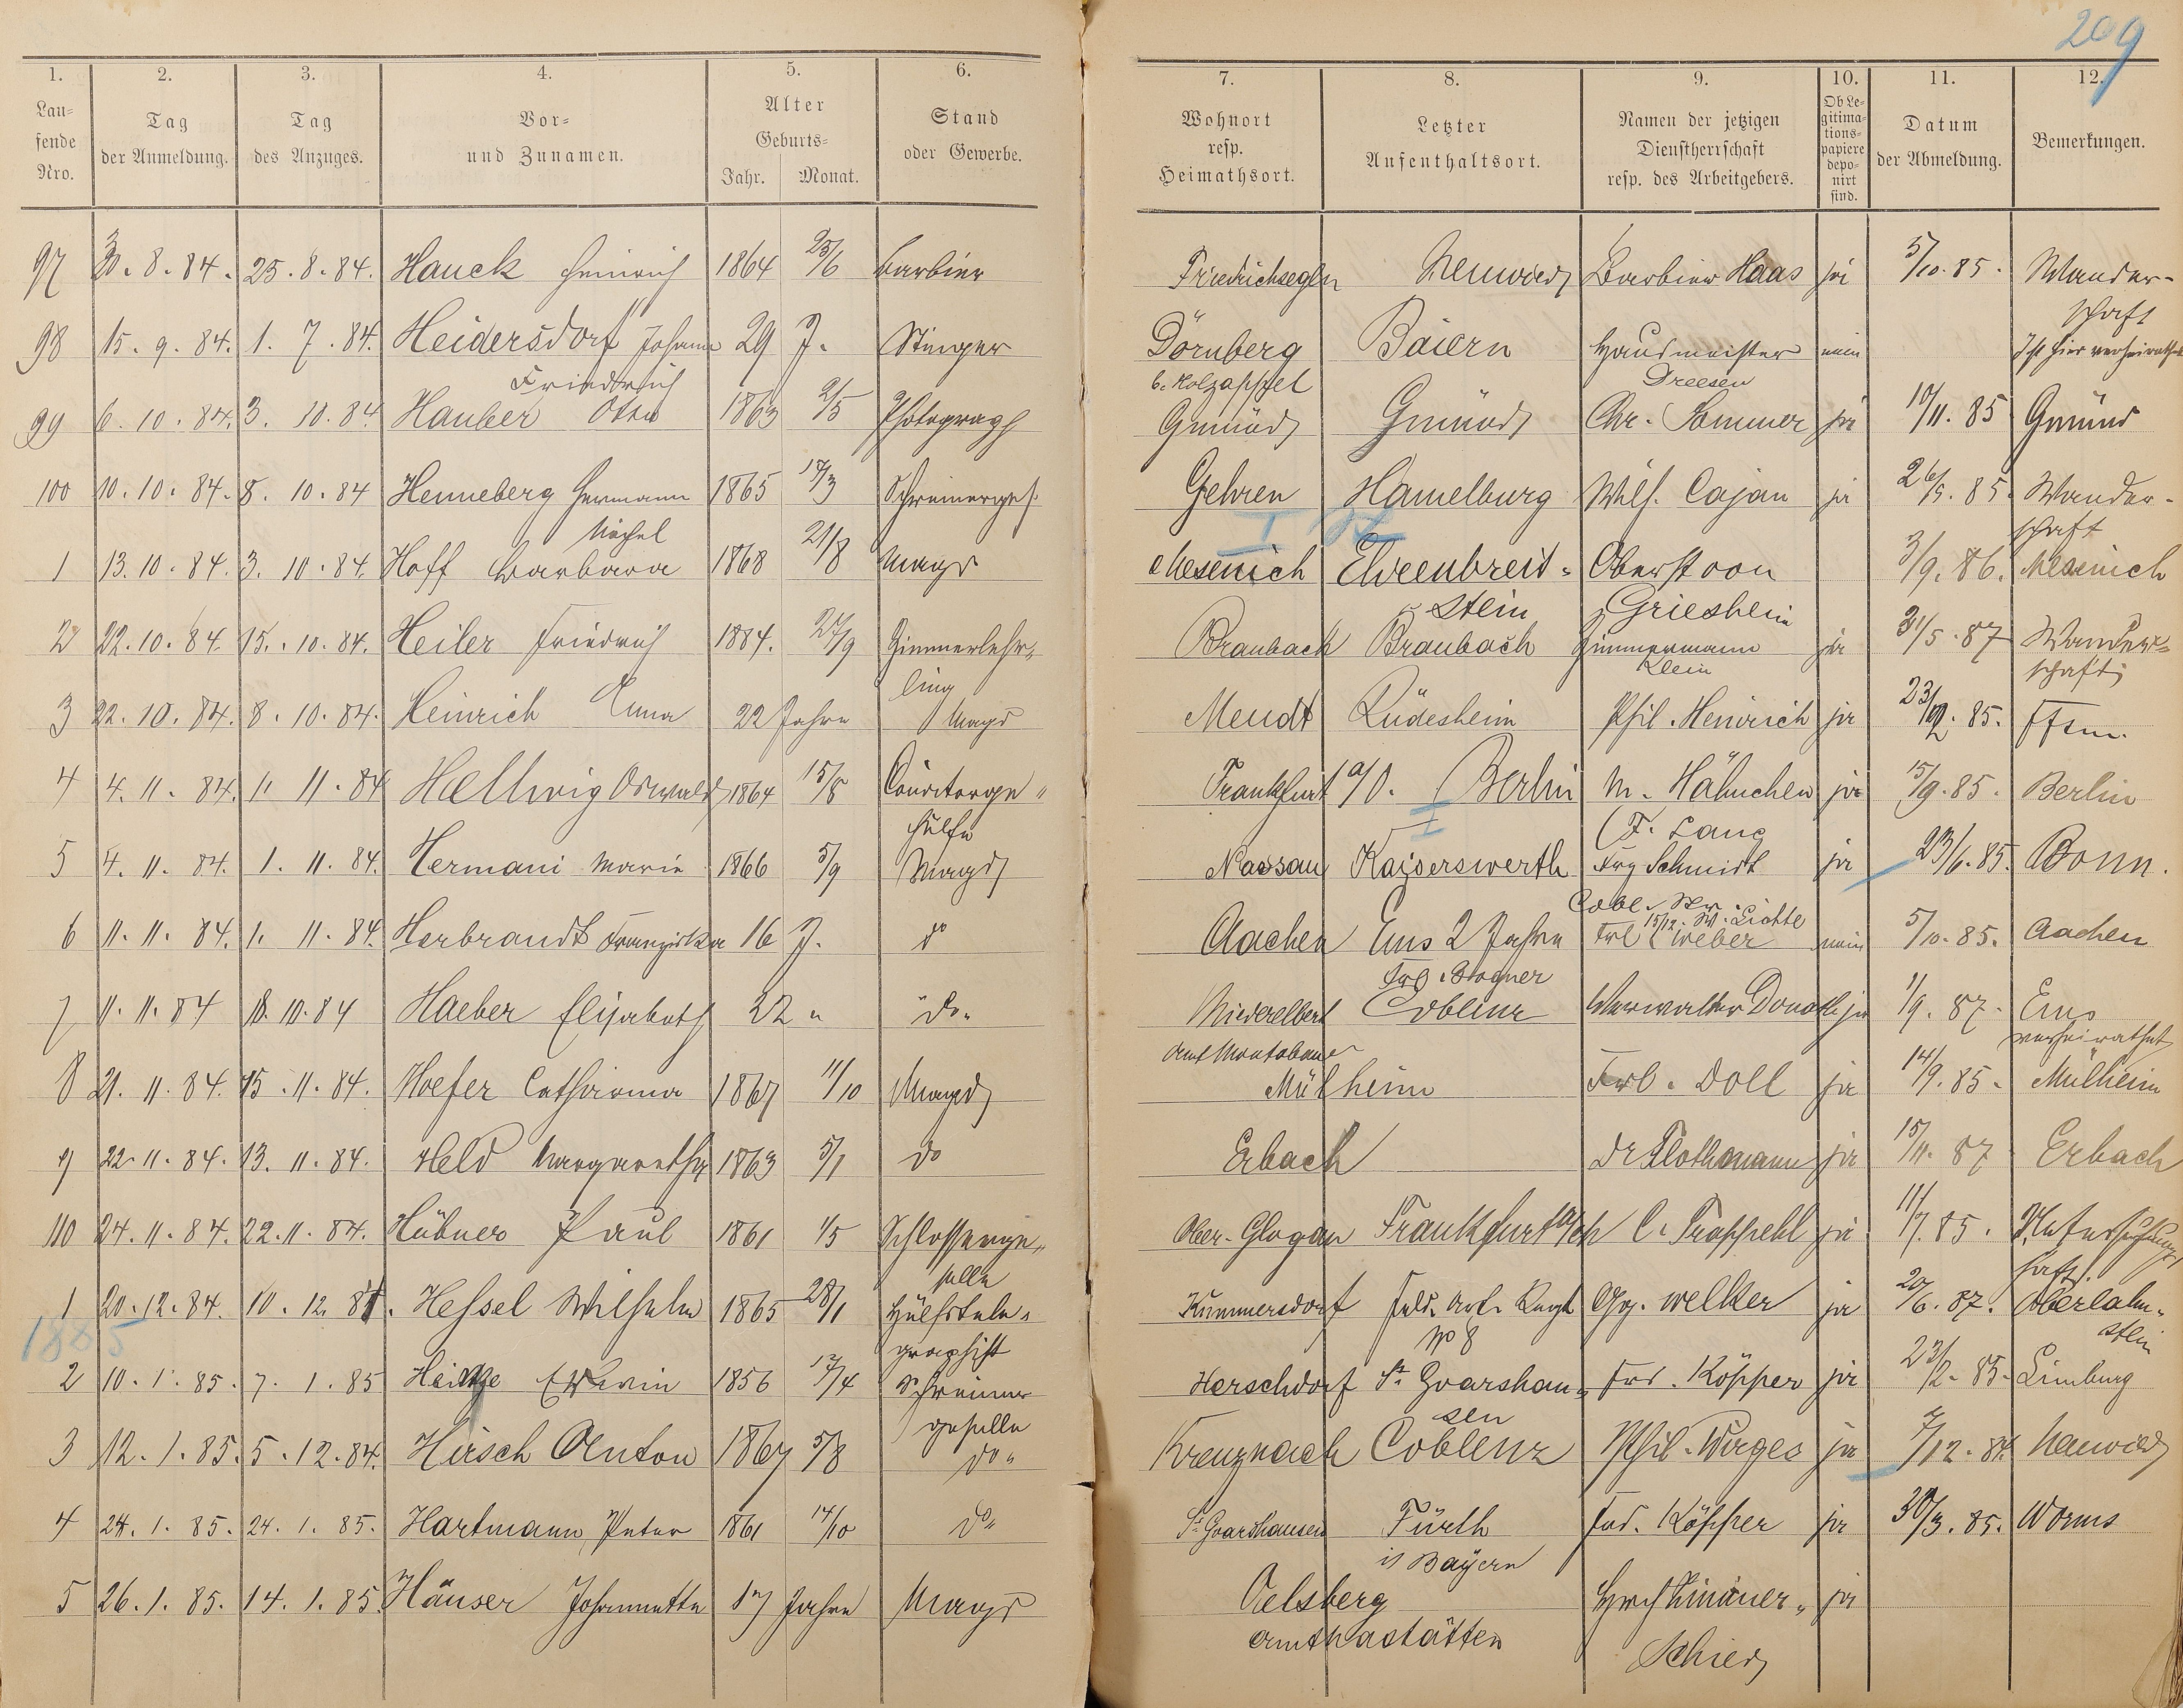 209
1. 2. 3. 4. 5. 6. 7. 8. 9. 10. 11. 12.
Lau-
fende
Nro.
Tag
der Anmeldung.
Tag
des Anzuges.
Vor-
und Zunamen.
Alter
Geburts-
Jahr. Monat.
Stand
oder Gewerbe.
Wohnort
resp.
Heimathsort.
Letzter
Aufenthaltsort.
Namen der jetzigen
Dienstherrschaft
resp. des Arbeitgebers.
Ob Le-
gitima-
tions-
papiere
depo-
nirt
sind.
Datum
der Abmeldung.
Bemerkungen.
97 30.8.84. 25.8.84. Hauck Heinrich 1864 25/6 Barbier Friedrichsegen Neuwied Barbier Haas ja 5/10.85. Wander-
schaft
98 15.9.84. 1.7.84. Heidersdorf Johann 29 J. Dörnberg Baiern Hausmeister nein Ist hier verheirathet
Friedrich b. Holzappel Dreesen
99 6.10.84. 3.10.84 Hauber Otto 1863 2/5 Photograph Gmünd Gmünd Chr. Sommer ja 10/11.85 Gmünd
100 10.10.84. 8.10.84 Henneberg Hermann 1865 17/3 Schreinerges. Gehren Hamelburg Wilh. Cajan ja 26/5.85. Wander-
schaft
1 13.10.84. 3.10.84. Hoff Barbara 1868 21/8 Magd Mesenich Ehrenbreit- Oberst von 3/9.86. Mesenich
stein Griesheim
2 22.10.84. 15.10.84. Heiler Friedrich 1884. 27/9 Zimmerlehr- Braubach Braubach Zimmermann ja 31/5.87 Wander-
ling Klein schaft
3 22.10.84. 8.10.84. Heinrich Anna 22 Jahre Magd Meudt Rüdesheim Phil. Heinrich ja 23/12.85. Ffm.
4 4.11.84. 1.11.84 Hellwig Oswald 1864 15/8 Conditorge- Frankfurt a/O. Berlin M. Hähnchen ja 15/9.85. Berlin
hülfe (F. Lang
5 4.11.84. 1.11.84. Hermani Marie 1866 5/9 Magd Nassau Kaiserswerth Frz Schmidt ja 23/6.85. Bonn.
6 11.11.84. 1.11.84. Herbrandt Franziska 16 J. do Aachen Ems 2 Jahre Frl Weber nein 5/10.85. Aachen
7 11.11.84 18.10.84 Haeber Elisabeth 22 " do. Niederelbert Coblenz Verwalter Donath ja 1/9.87. Ems
Amt Montabaur verheirathet
8 21.11.84. 15.11.84. Hoefer Catharina 1867 11/10 Magd Mülheim Frl. Doll ja 14/9.85. Mülheim
9 22.11.84. 13.11.84. Held Margaretha 1863 5/1 do Erbach Dr Flothmann ja 15/11.87 Erbach
110 24.11.84. 22.11.84. Hübner Paul 1861 1/5 Schlosserge- Ober-Glogau Frankfurt a/M C. Trappehl ja 11/7.85. Untersuchungs
selle haft.
1 20.12.84. 10.12.84. Hessel Wilhelm 1865 28/1 Hülfstele- Kummersdorf Feld. Art. Regt Gg. Welker ja 20/6.87. Oberlahn-
graphist No 8 stein
1885
2 10.1.85. 7.1.85 Heintze Erwin 1856 17/4 Schreiner Herschdorf St. Goarshau- Frd. Köpper ja 23/2.85. Limburg
geselle sen
3 12.1.85. 5.12.84. Hirsch Anton 1867 5/8 do. Kreuznach Coblenz Phil. Wirges ja 7/12.84. Neuwied
4 24.1.85. 24.1.85. Hartmann Peter 1861 14/10 do. St. Goarshausen Fürth Frd. Köpper ja 30/3.85. Worms
in Bayern
5 26.1.85. 14.1.85. Häuser Johannette 17 Jahre Magd Oelsberg ja
Amt Nastätten Schied